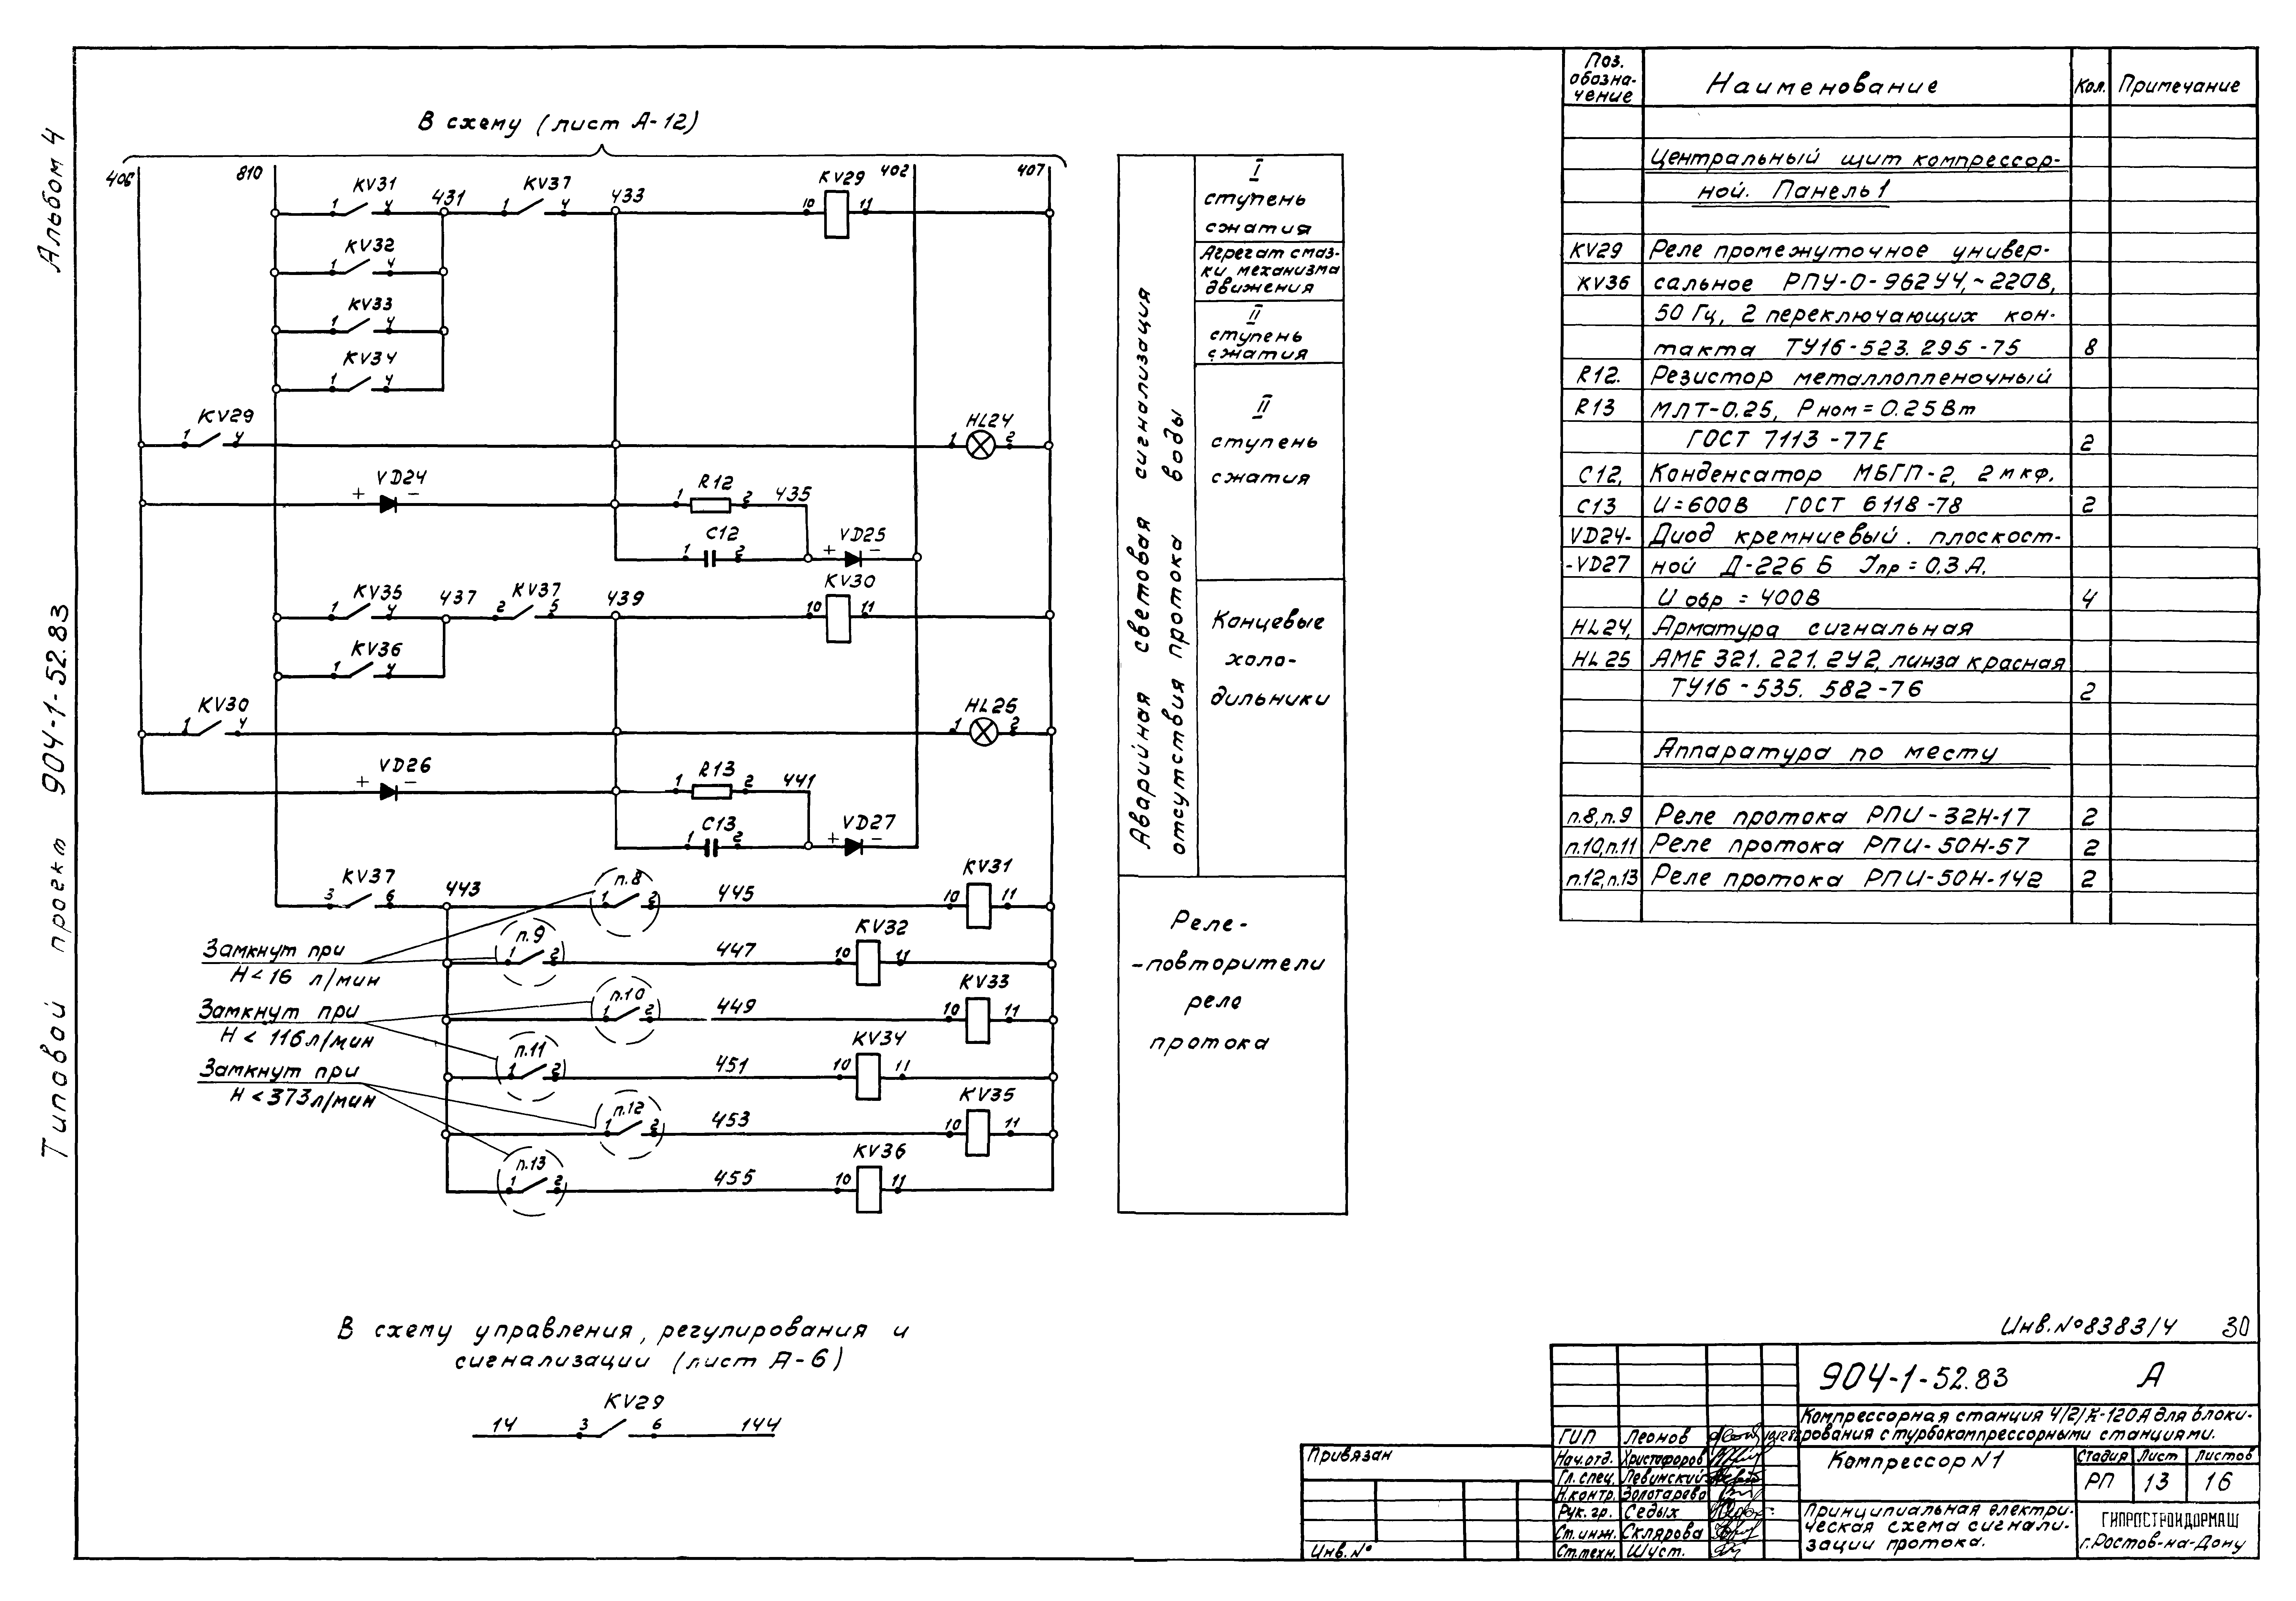 Альбом 4
Типовой проект 904-1-52.83
В схему (лист А-12)
406
810
402
407
KV31
1 4
431
KV37
1 4
433
KV29
10 11
KV32
1 4
KV33
1 4
KV34
1 4
KV29
1 4
HL24
1 2
VD24
+ -
R12
1 2
435
C12
1 2
VD25
+ -
KV35
1 4
437
KV37
2 5
439
KV30
10 11
KV36
1 4
KV30
1 4
HL25
1 2
VD26
+ -
R13
1 2
441
C13
1 2
VD27
+ -
KV37
3 6
443
п.8
1 2
445
KV31
10 11
п.9
1 2
447
KV32
10 11
Замкнут при
Н < 16 л/мин
п.10
1 2
449
KV33
10 11
Замкнут при
Н < 116 л/мин
п.11
1 2
451
KV34
10 11
Замкнут при
Н < 373 л/мин
п.12
1 2
453
KV35
10 11
п.13
1 2
455
KV36
10 11
Аварийная световая сигнализация
отсутствия протока воды
I
ступень
сжатия
Агрегат смаз-
ки механизма
движения
II
ступень
сжатия
II
ступень
сжатия
Концевые
холо-
дильники
Реле-
-повторители
реле
протока
В схему управления, регулирования и
сигнализации (лист А-6)
KV29
14 3 6 144
Поз. обозна-чение Наименование Кол. Примечание
Центральный щит компрессор-
ной. Панель 1
KV29 Реле промежуточное универ-
KV36 сальное РПУ-0-962У4, ~220В,
50 Гц, 2 переключающих кон-
такта ТУ16-523.295-75 8
R12. Резистор металлопленочный
R13 МЛТ-0,25, Рном = 0.25Вт
ГОСТ 7113-77Е 2
C12, Конденсатор МБГП-2, 2 мкф.
C13 U=600В ГОСТ 6118-78 2
VD24- Диод кремниевый. плоскост-
-VD27 ной Д-226 Б Jпр = 0,3 А,
U обр = 400В 4
HL24, Арматура сигнальная
HL25 АМЕ 321.221.2У2, линза красная
ТУ16-535.582-76 2
Аппаратура по месту
п.8, п.9 Реле протока РПИ-32Н-17 2
п.10, п.11 Реле протока РПИ-50Н-57 2
п.12, п.13 Реле протока РПИ-50Н-142 2
Инв. № 8383/4 30
904-1-52.83 А
Компрессорная станция 4/2/К-120А для блоки-
рования с турбокомпрессорными станциями.
ГИП Леонов
Нач.отд. Христофоров
Гл.спец. Левинский
Н.контр. Золотарева
Рук. гр. Седых
Ст.инж. Склярова
Ст.техн. Шуст.
Компрессор N1
Стадия Лист Листов
РП 13 16
Принципиальная электри-
ческая схема сигнали-
зации протока.
ГИПРОСТРОЙДОРМАШ
г. Ростов-на-Дону
Привязан
Инв. №